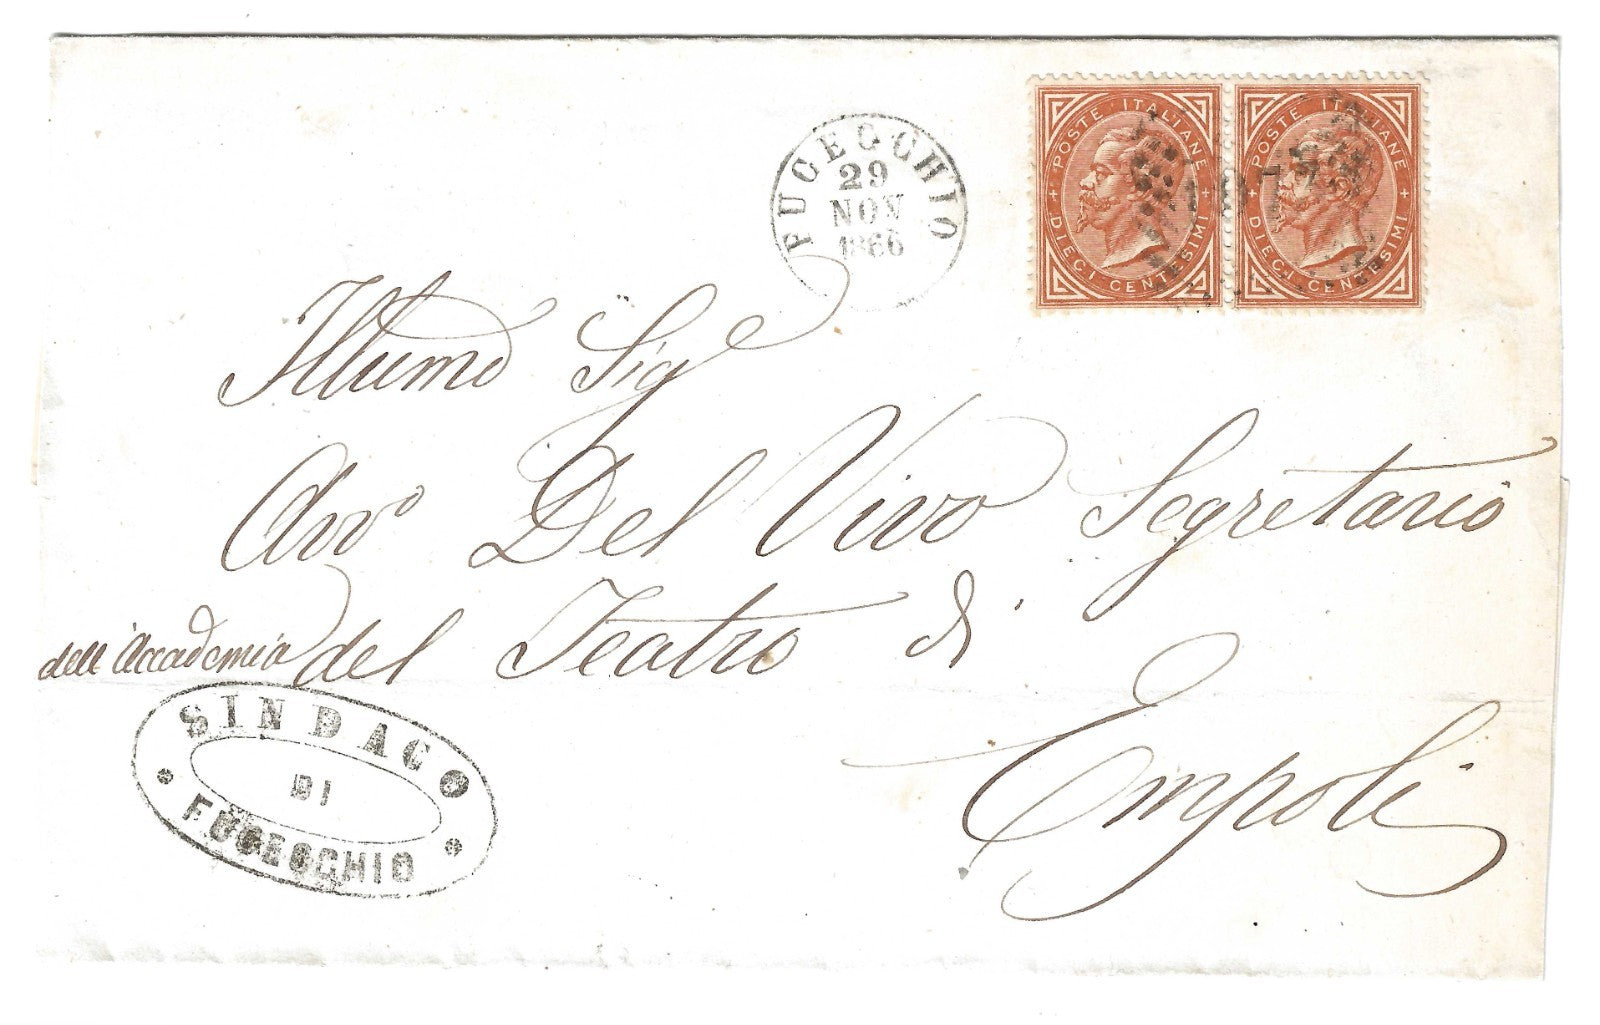 FUCECCHIO
29
NOV
1866
POSTE ITALIANE
DIECI CENTESIMI
POSTE ITALIANE
DIECI CENTESIMI
Illumo Sigre
Avvo Del Vivo Segretario
dell'Accademia del Teatro di
Empoli
SINDACO
DI
FUCECCHIO